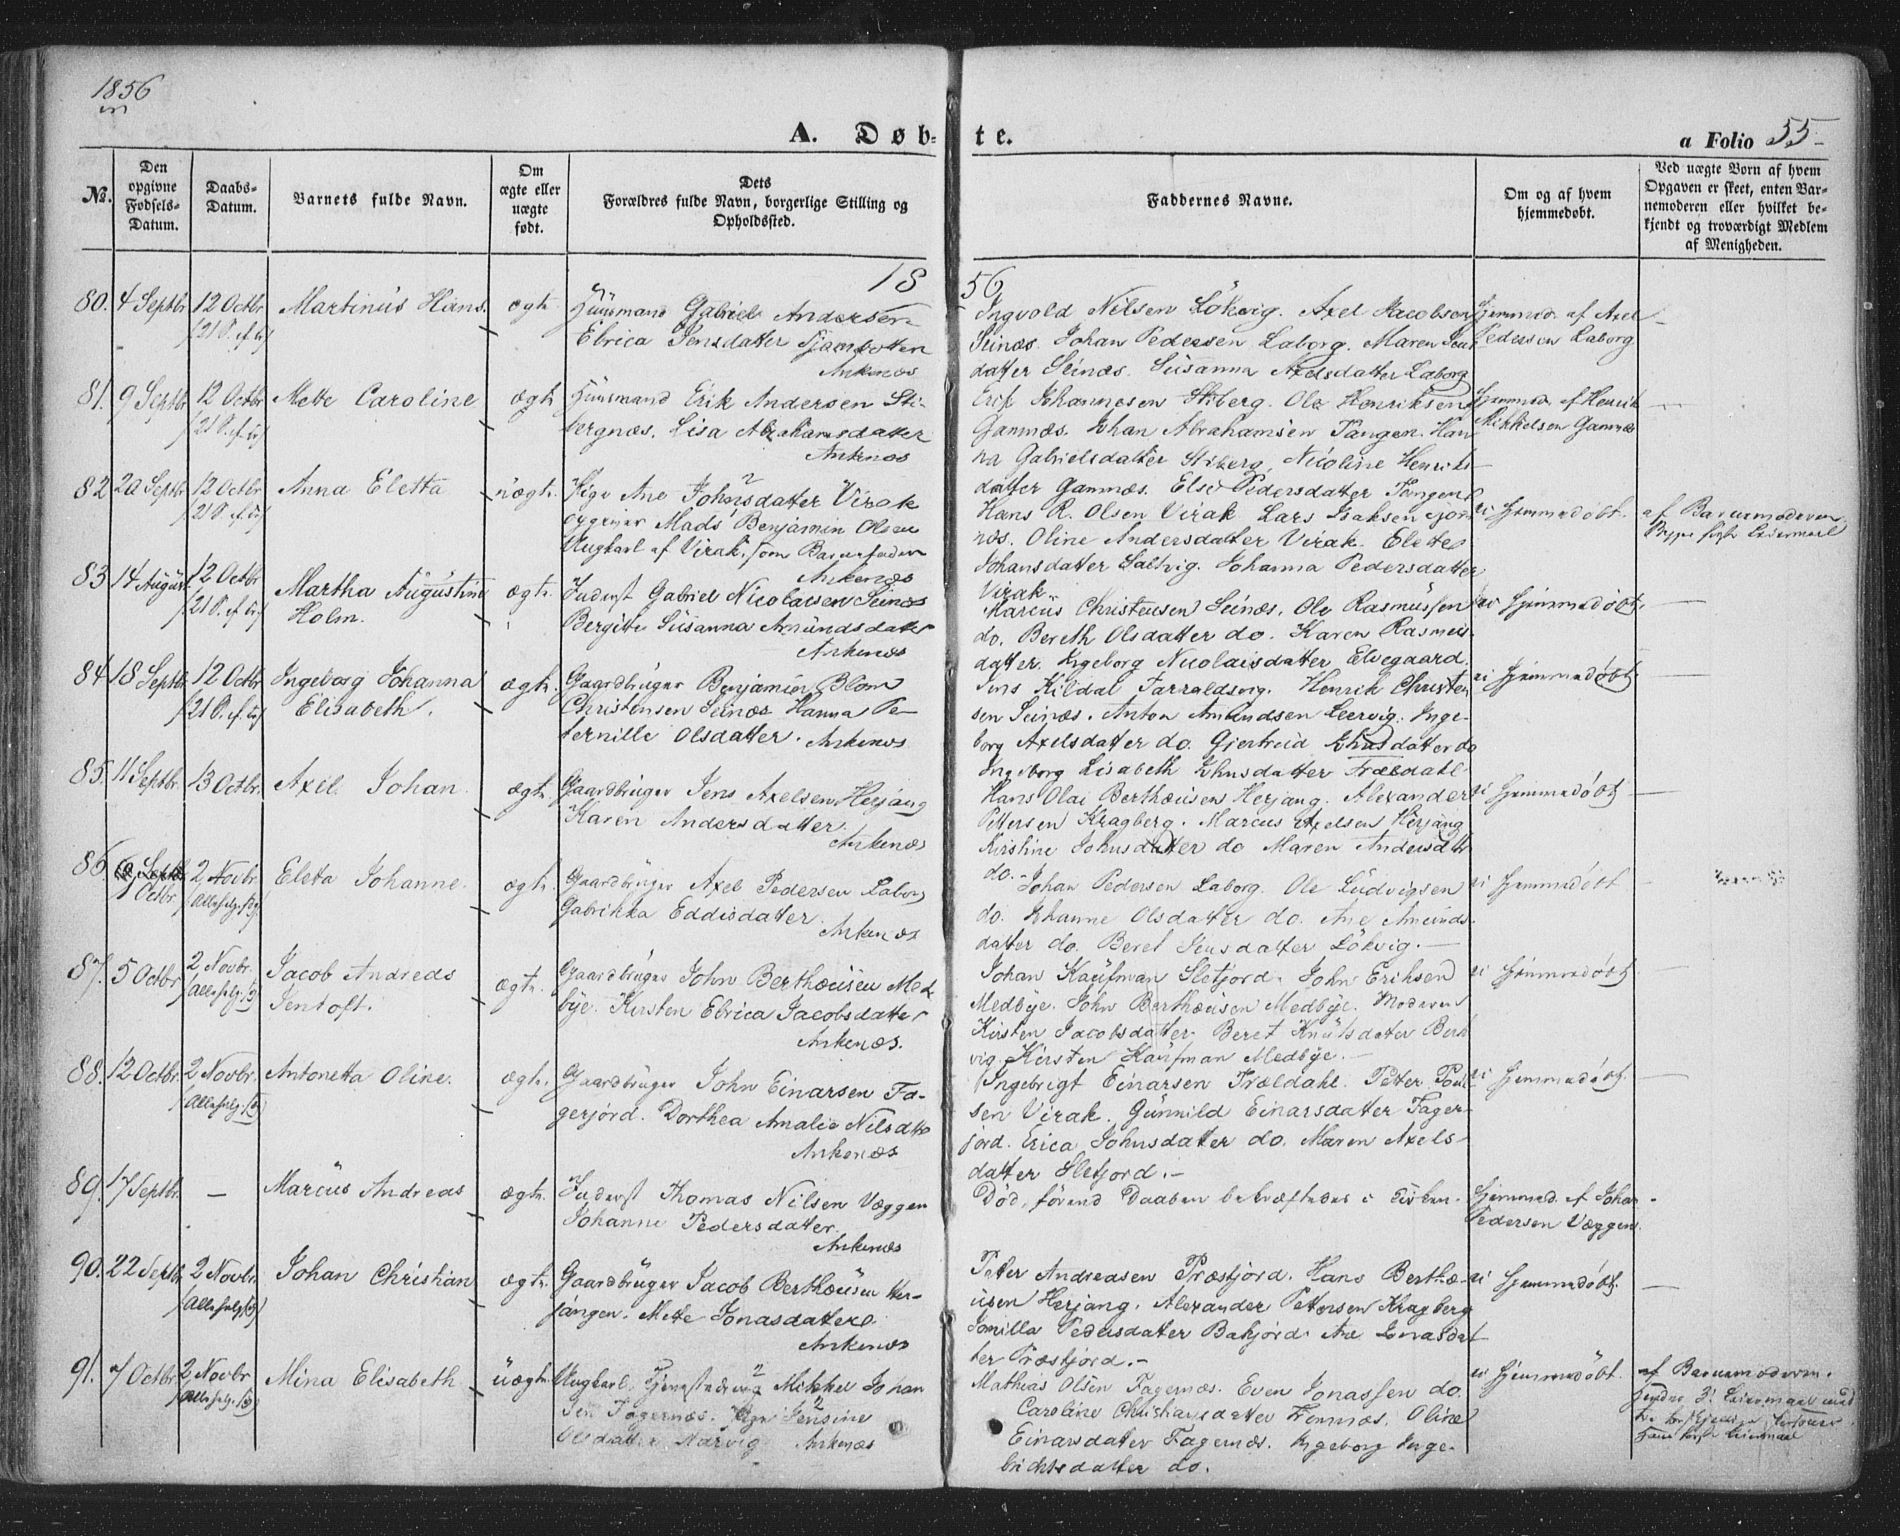 1856
A. Døbte.
a Folio 55
No.
Den opgivne Fødsels-Datum.
Daabs-Datum.
Barnets fulde Navn.
Om ægte eller uægte født.
Dets Forældres fulde Navn, borgerlige Stilling og Opholdssted.
Faddernes Navne.
Om og af hvem hjemmedøbt.
Ved uægte Børn af hvem Opgaven er skeet, enten Barnemoderen eller hvilket bekjendt og troværdigt Medlem af Menigheden.
1856
80. 4 Septbr 12 Octbr Martinus Hans. ægte Huusmand Gabriel Andersen
Ebrica Jensdatter
Ankenæs
Ingvold Nilsen Lökvig. Axel Jacobsen
Seinæs. Johan Pedersen Laborg. Maren Jens
datter Seinæs. Susanna Axelsdatter Laborg
Hjemmed. af Axel
Pedersen Laborg
81. 9 Septbr 12 Octbr Mette Caroline ægte Huusmand Erik Andersen Sti-
bergnæs. Lisa Abrahamsdatter
Ankenæs
Erik Johannesen Stiberg. Ole Henriksen
Gammæs. Johan Abrahamsen Tangen. Han
na Gabrielsdatter Stiberg, Nicoline Henriks
datter Gamnæs. Else Pedersdatter Tangen
Hjemmed. af Henrik
Mikkelsen Gamnæs
82 20 Septbr 12 Octbr Anna Eletta uægte Pige Ane Johnsdatter Virak
opgiver Mads Benjamin Olsen
Ungkarl af Virak, som Barnefader
Ankenæs
Hans R. Olsen Virak Lars Isaksen
næs. Oline Andersdatter Virak. Elette
Johansdatter Saltvig. Johanna Pedersdatter
Virak
ei Hjemmedøbt.
af Barnemoderen
83 14 August 12 Octbr Martha Augustine
Holm.
ægte Inderst Gabriel Nicolaisen Seinæs
Bergitte Susanna Amundsdatter
Ankenæs
Marcus Christensen Seinæs. Ole Rasmussen
do. Bereth Olsdatter do. Karen Rasmus
datter. Ingeborg Nicolaisdatter Elvegaard.
ei Hjemmedøbt.
84 18 Septbr 12 Octbr Ingeborg Johanna
Elisabeth.
ægte Gaardbruger Benjamin Blom
Christensen Seinæs Hanna Pe-
ternille Olsdatter. Ankenæs
Jens Kildal Farraldsvig. Henrik Christen
sen Seinæs. Anton Amundsen Leervig. Inge-
borg Axelsdatter do. Gjertrud Johnsdatter do
Ingeborg Lisabeth Johnsdatter Trældahl
ei Hjemmedøbt
85. 11 Septbr. 13 Octbr. Axel Johan ægte Gaardbruger Jens Axelsen Herjang
Karen Andersdatter.
Ankenæs
Hans Olai Berthæusen Herjang. Alexander
Pettersen Kragberg. Marcus Axelsen Herjang
Kirstine Johnsdatter do Maren Andersdtr
do.
ei Hjemmedøbt
86 Octbr 2 Novbr Eleta Johanne. ægte Gaardbruger Axel Pedersen Laborg
Gabrikka Eddisdatter.
Ankenæs
Johan Pedersen Laborg. Ole Ludvigsen
do. Johanne Olsdatter do. Ane Amunds
datter do. Beret Jensdatter Lökvig.
ei Hjemmedøbt
87. 5 Octbr 2 Novbr. Jacob Andreas
Jentoft.
ægte. Gaardbruger John Berthæusen Med
bye. Kirsten Ebrica Jacobsdatter
Ankenæs.
Johan Kaufman Sletjord. John Eriksen
Medbye. John Berthæusen Medbye. Moderen
Kirsten Jacobsdatter. Beret Knutsdatter
vig. Kirsten Kaufman Medbye.
ei Hjemmedøbt
88. 12 Octbr. 2 Novbr. Antonetta Oline. ægte. Gaardbruger John Einarsen Fa-
gerjord. Dorthea Amalia Nilsdtr
Ankenæs
Ingebrigt Einarsen Trældahl. Petter Poul
sen Virak. Gunnild Einarsdatter Fager-
jord. Erica Johnsdatter do. Maren Axels-
datter Sletjord.
ei Hjemmedøbt.
89. 17 Septbr. — Marcus Andreas ægte. Inderst Thomas Nilsen Væggen
Johanne Pedersdatter.
Ankenæs
Død, førend Daaben bekræftedes i Kirken.
Hjemmed. af Johan
Pedersen Væggen
90. 22 Septbr 2 Novbr. Johan Christian ægte. Gaardbruger Jacob Berthæusen Her-
jangen. Mette Jonasdatter
Ankenæs
Peter Andreasen Præstjord. Hans Berthæ-
usen Herjang. Alexander Pettersen Kragberg
Jomilla Pedersdatter Bakjord. Ane Jonasdat
ter Præstjord.
ei Hjemmedøbt.
91. 7 Octbr 2 Novbr Mina Elisabeth uægte Ungkarl, Mikkel Johan
sen Fagernæs. Pige Jensine
Olsdatter Narvig Ankenæs
Mathias Olsen Fagernæs. Even Jonassen do.
Caroline Christiansdatter Femnæs. Oline
Einarsdatter Fagernæs. Ingeborg Inge-
brichtsdatter do.
ei Hjemmedøbt.
af Barnemoderen.